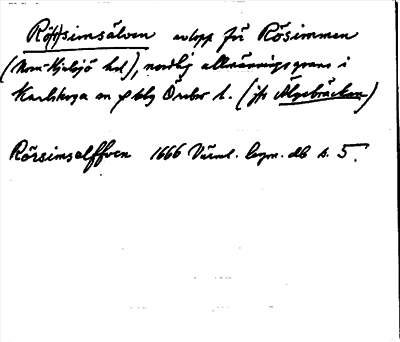 Rö(r)simsälven avlopp frå Rösimmen
(Norra-Hjulsjö hd), nordlig allmänningsgräns i
Karlskoga sn o bg Örebro l. (jfr Älgebäcken)
Rörsimselffven 1666 Värml. lagm. db s. 5.